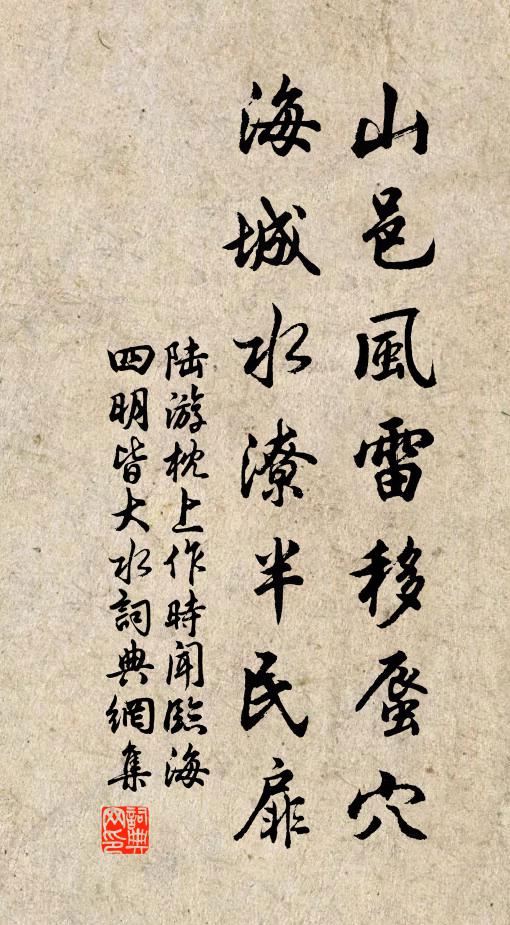 山邑風雷移蜃穴
海城水潦半民扉
陸游枕上作時聞臨海
四明皆大水詞典網集
詞典
网印